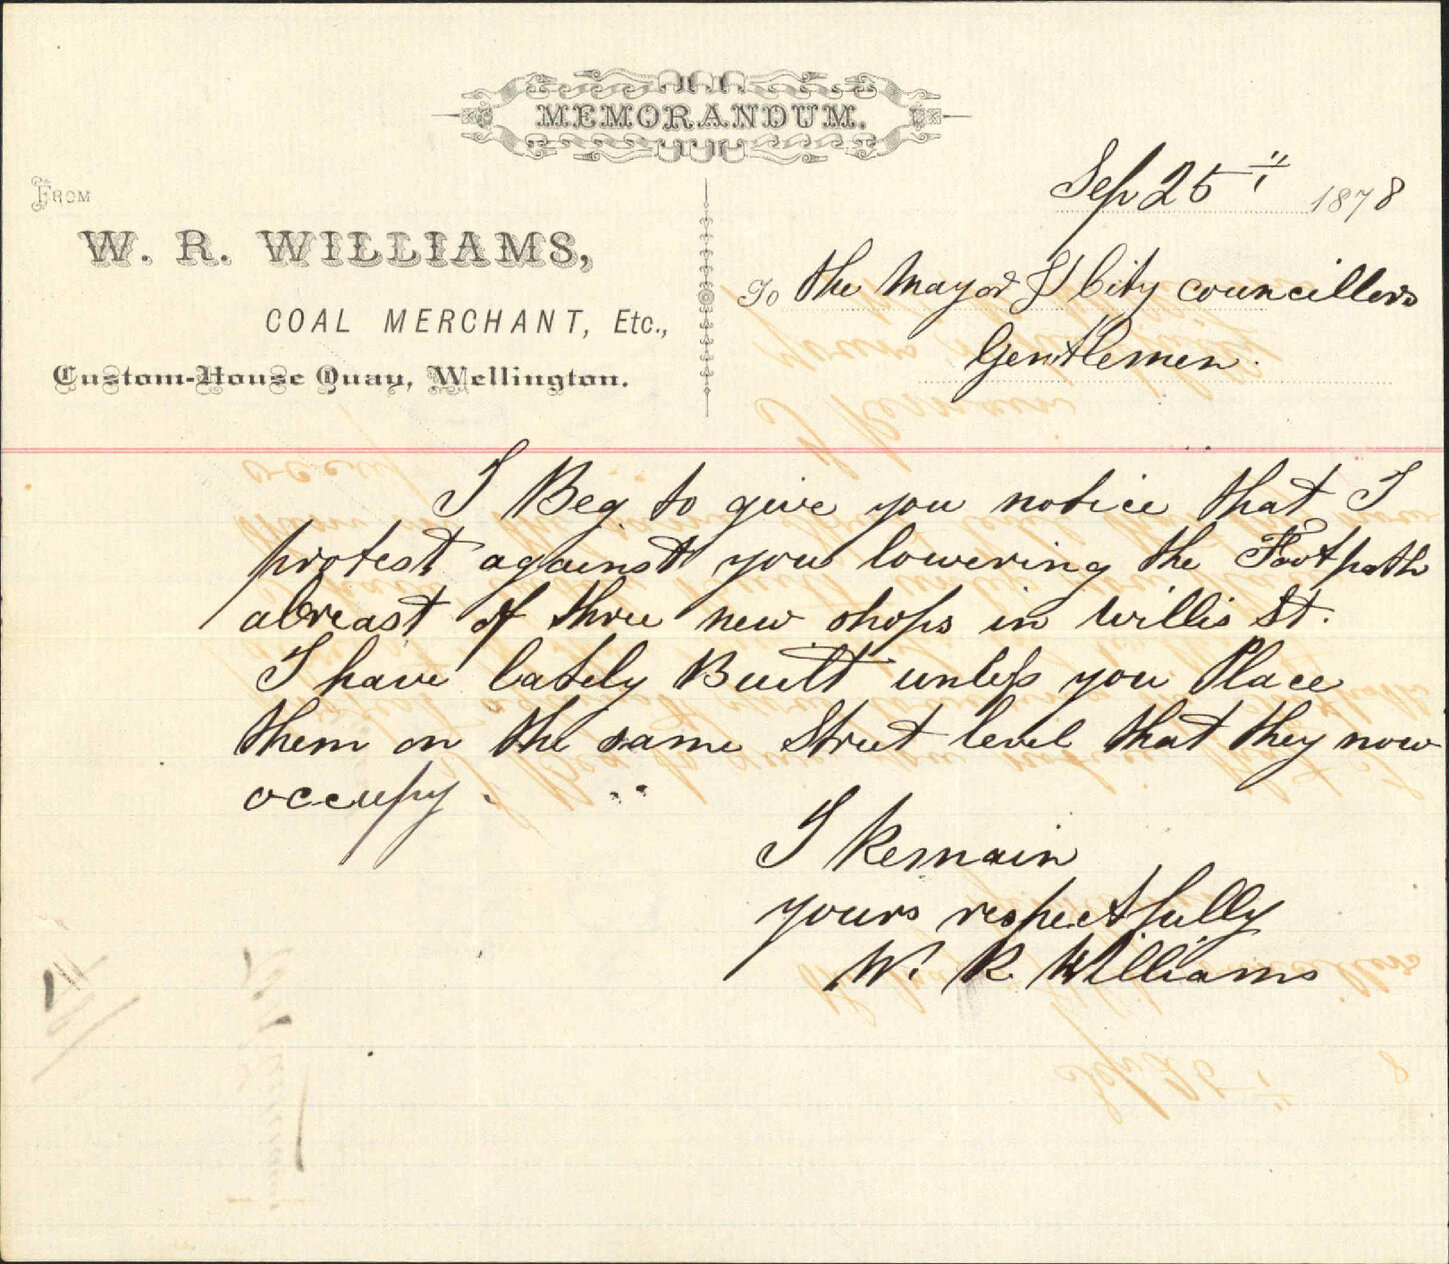 MEMORANDUM.
FROM
W. R. WILLIAMS,
COAL MERCHANT, Etc.,
Custom-House Quay, Wellington.
Sep 25th 1878
To the Mayor & City councillors
Gentlemen.
I Beg to give you notice that I
protest against you lowering the Footpath
abreast of three new shops in Willis St.
I have lately Built unless you Place
them on the same Street level that they now
occupy.
I Remain
yours respectfully
W. R Williams